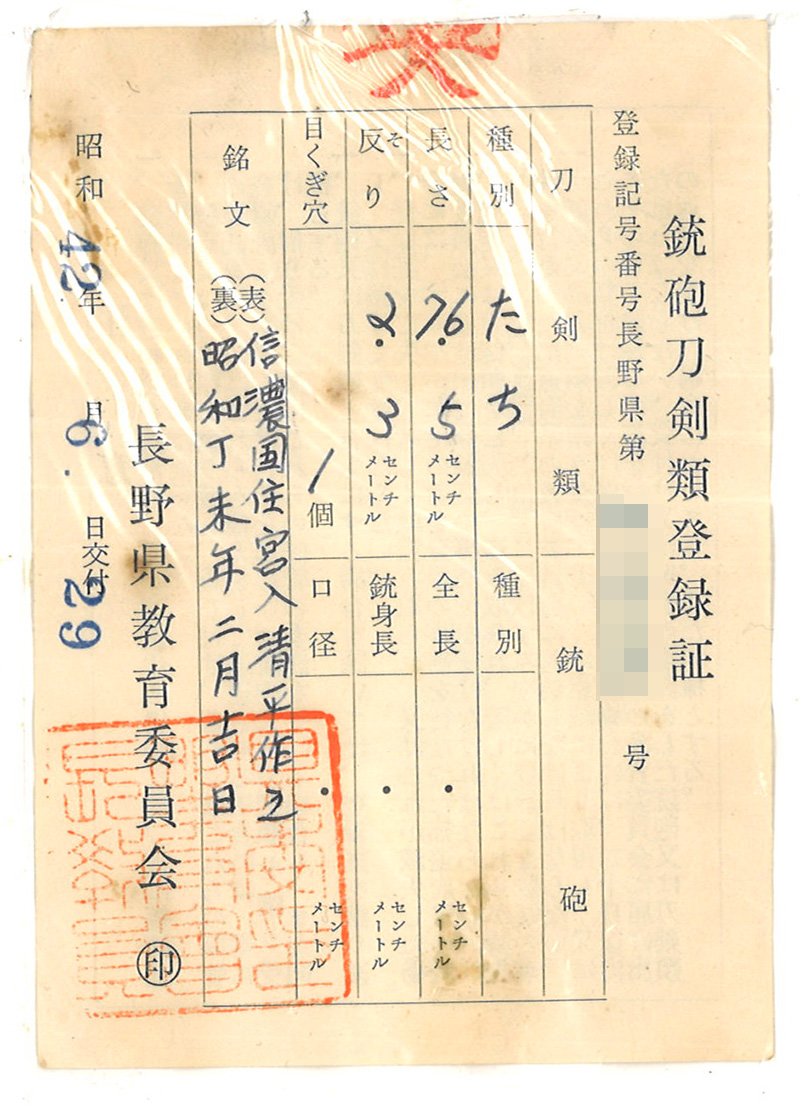 銃砲刀剣類登録証
登録記号番号長野県第
号
刀剣類
銃砲
種別
たち
種別
長さ
76.5
センチメートル
全長
・
センチメートル
反り
そ
2.3
センチメートル
銃身長
・
センチメートル
目くぎ穴
1個
口径
・
センチメートル
銘文
(表)信濃国住宮入清平作之
(裏)昭和丁未年二月吉日
長野県教育委員会 印
昭和42年6.月29日交付